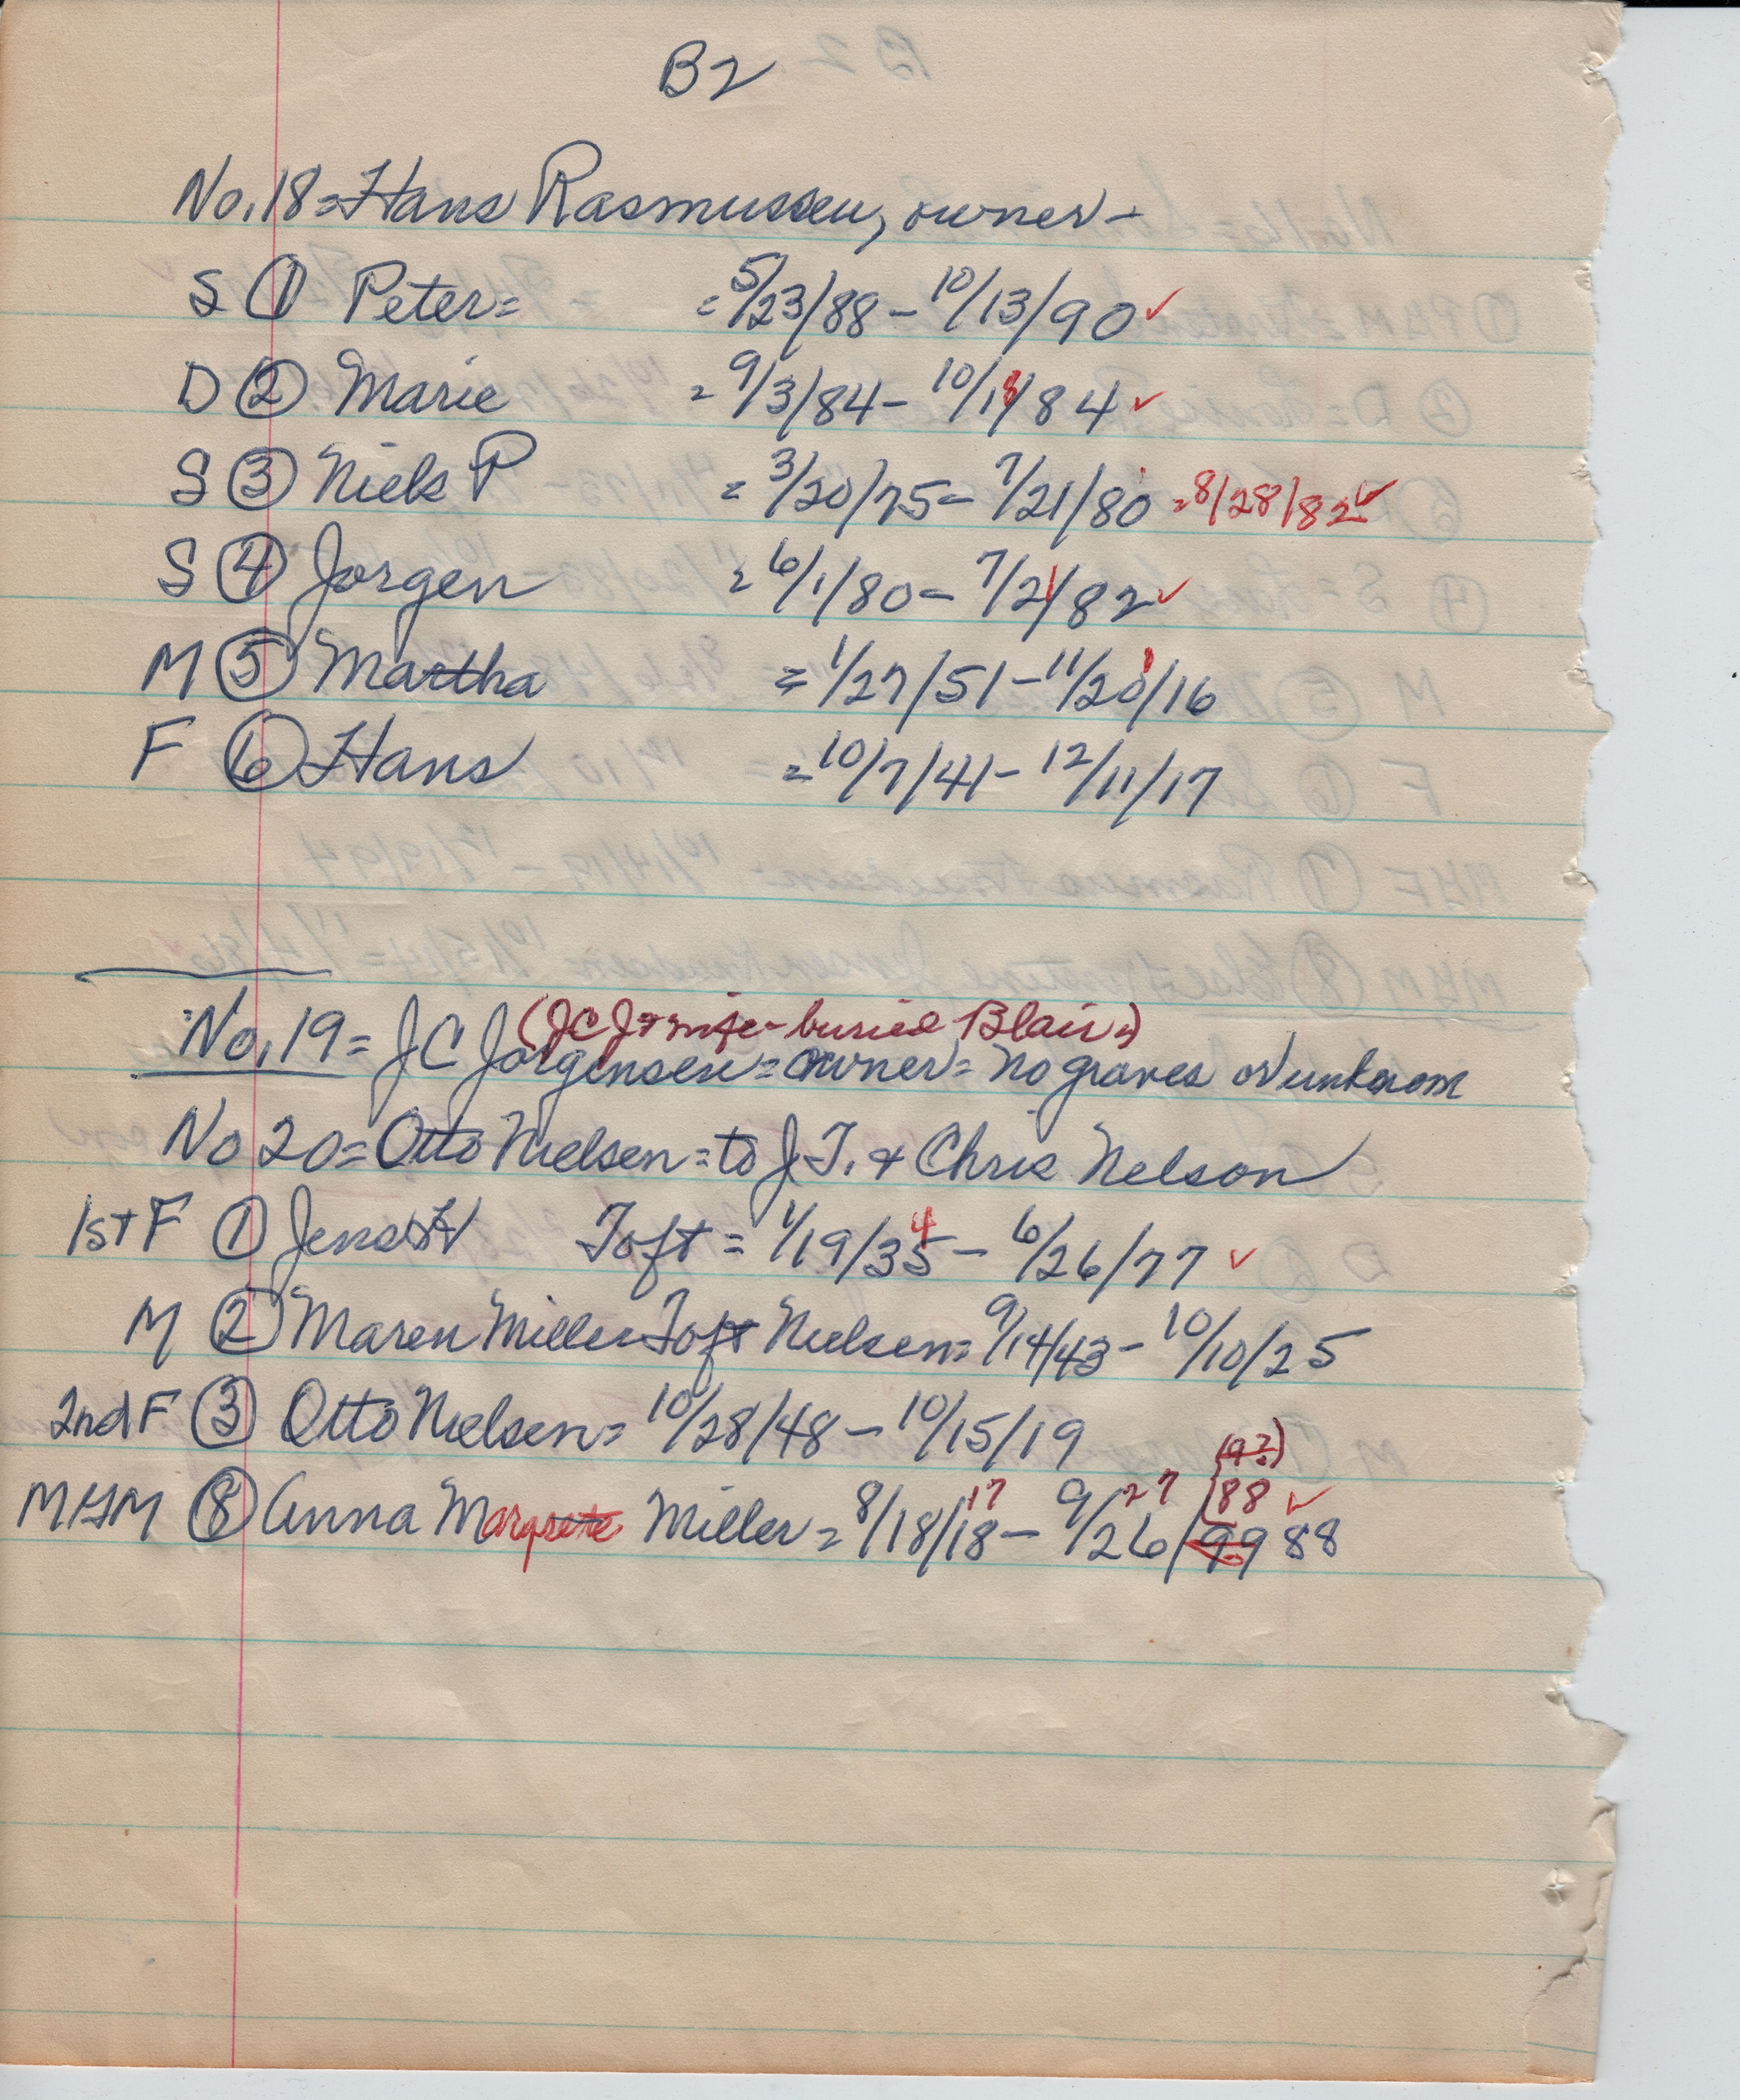 B2
No. 18 = Hans Rasmussen, owner -
S ① Peter = = 5/23/88 - 10/13/90 ✓
D ② Marie = 9/3/84 - 10/18/84 ✓
S ③ Niels P = 3/20/75 - 7/21/80 = 8/28/82 ✓
S ④ Jorgen = 6/1/80 - 7/21/82 ✓
M ⑤ Martha = 1/27/51 - 11/20/16
F ⑥ Hans = 10/7/41 - 12/11/17
(JCJ & wife - buried Blair)
No. 19 = JC Jorgensen = owner = no graves or unknown
No 20 = Otto Nielsen = to J.T. & Chris Nelson
1st F ① Jens Toft = 1/19/35 4 - 6/26/77 ✓
M ② Maren Miller Toft Nielsen = 9/14/43 - 10/10/25
2nd F ③ Otto Nielsen = 10/28/48 - 10/15/19
(9?)
17 27 88 ✓
M&M ⑧ Anna Margrete Miller = 8/18/18 - 9/26/99 88